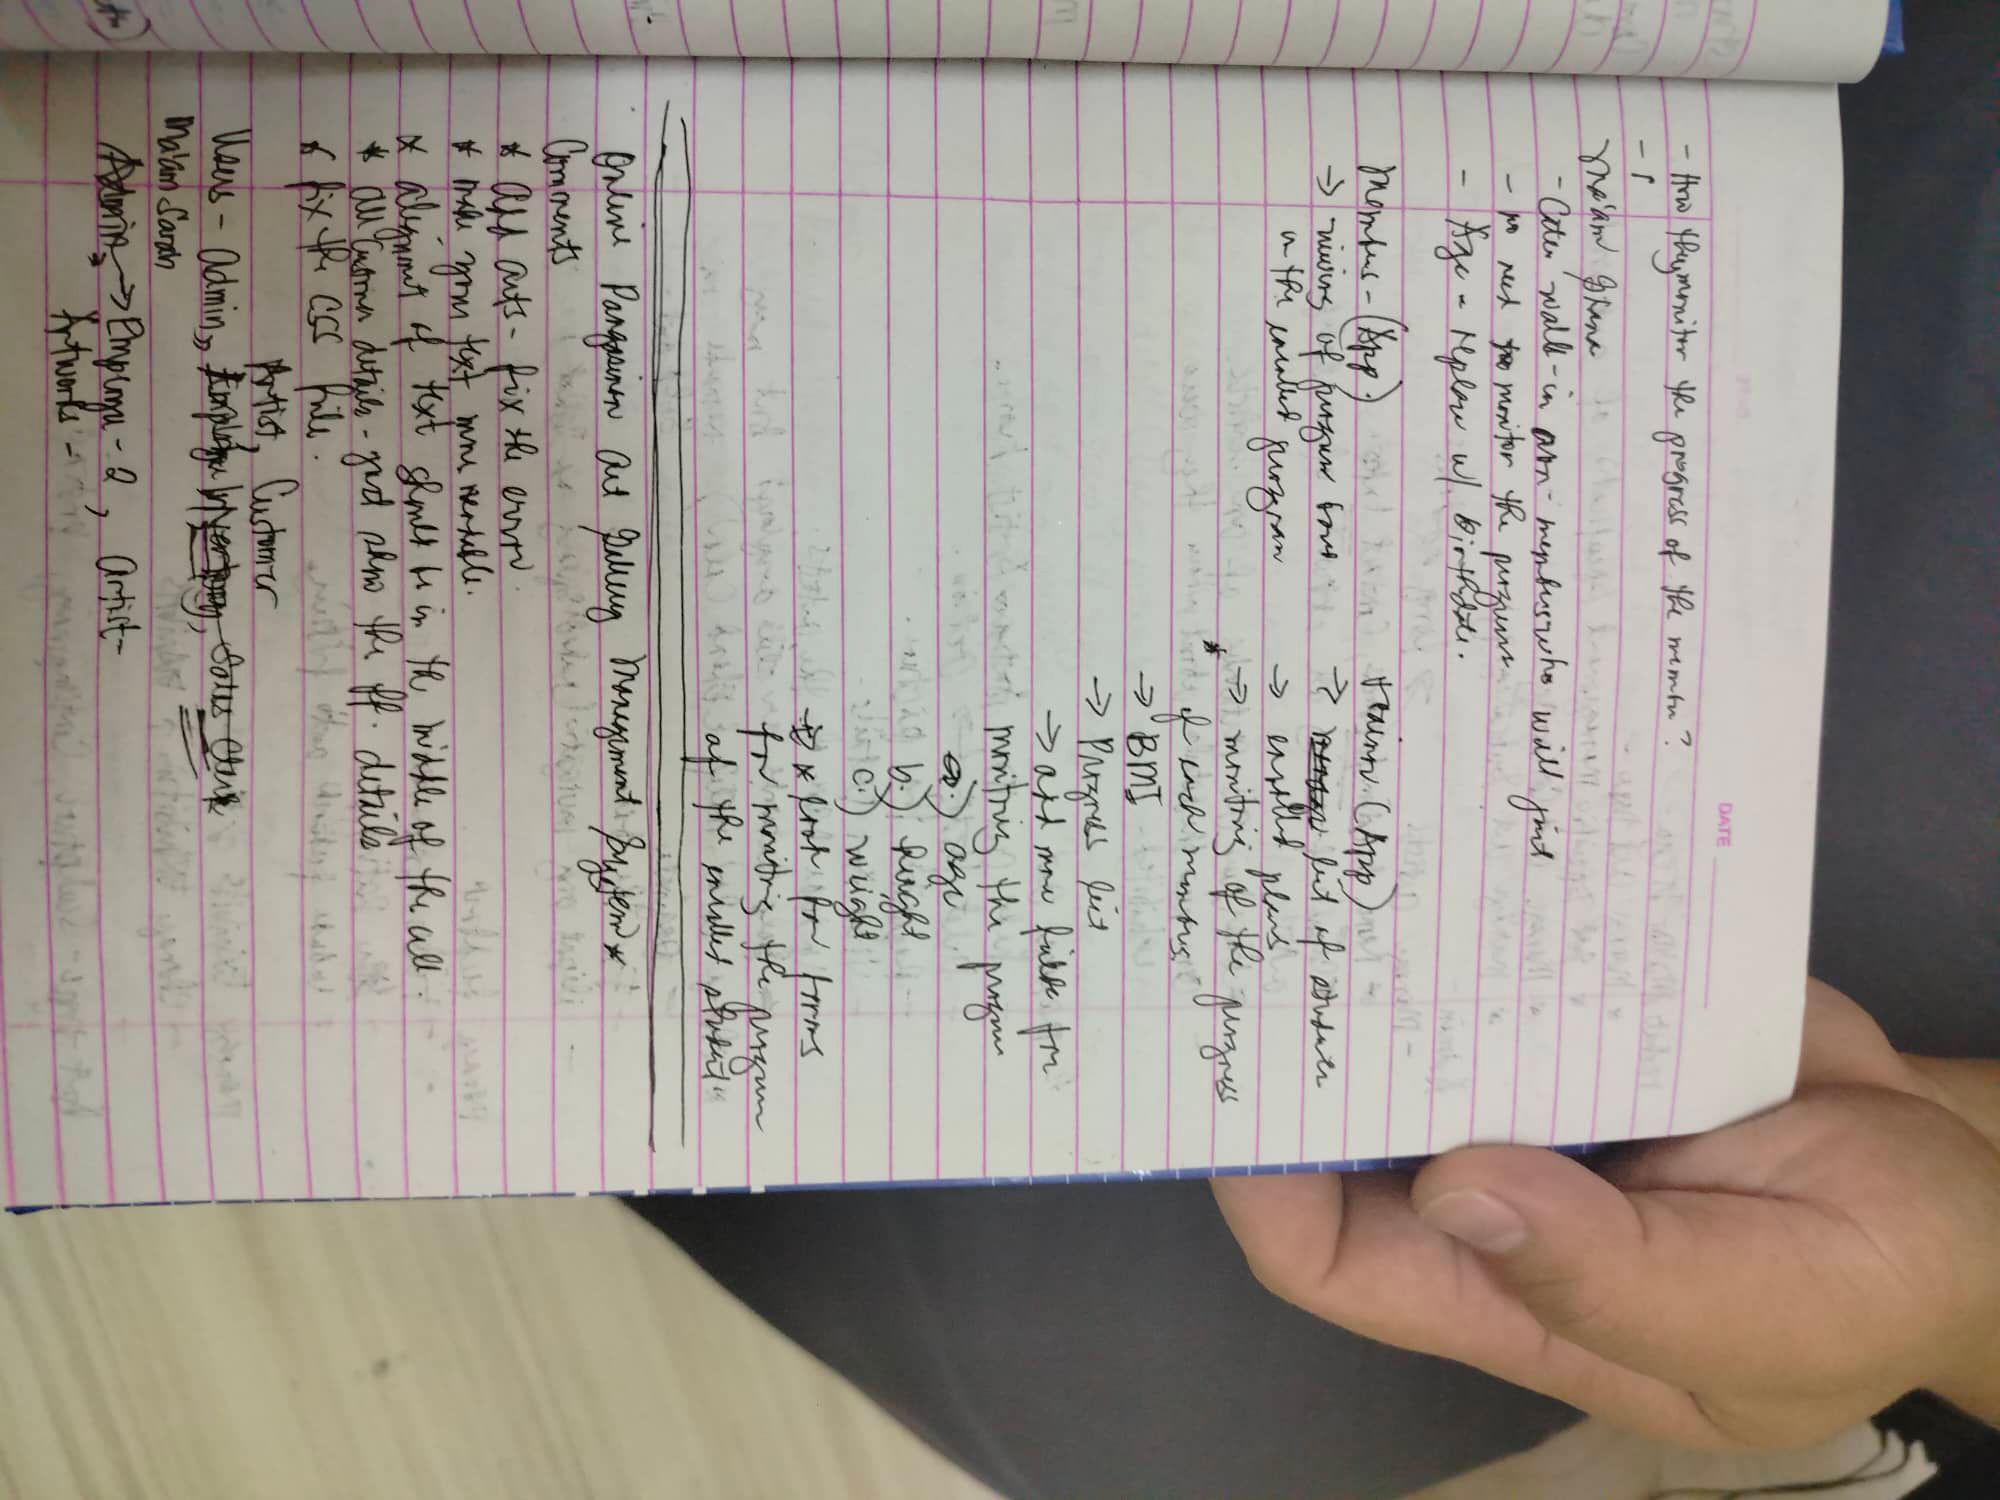 DATE
- How they monitor the progress of the member?
-
Ma'am
- Cater walk-in non-members who will just
- no need to monitor the progress
- Age - replace w/ Birthdate.
Members - (App)
→ viewing of program based
in the enrolled program
trainer (App)
→ list of students
→ enrolled plans
→ monitoring of the progress
* of each members
→ BMI
→ Progress list
→ add more fields for
monitoring the progress
a.) age
b.) height
c.) weight
* look for forms
for monitoring the progress
of the enrolled student
Online Pangasinan Art Gallery Management System *
Comments
* Add arts - fix the error.
* make your text more readable.
* alignment of text should be in the middle of the cell.
* All customer details - just show the ff. details
* fix the CSS file.
Artist, Customer
Users - Admin, Employee Inventory, Sales Clerk
Ma'am Sarah
Admin, → Employee - 2, Artist -
Artworks -